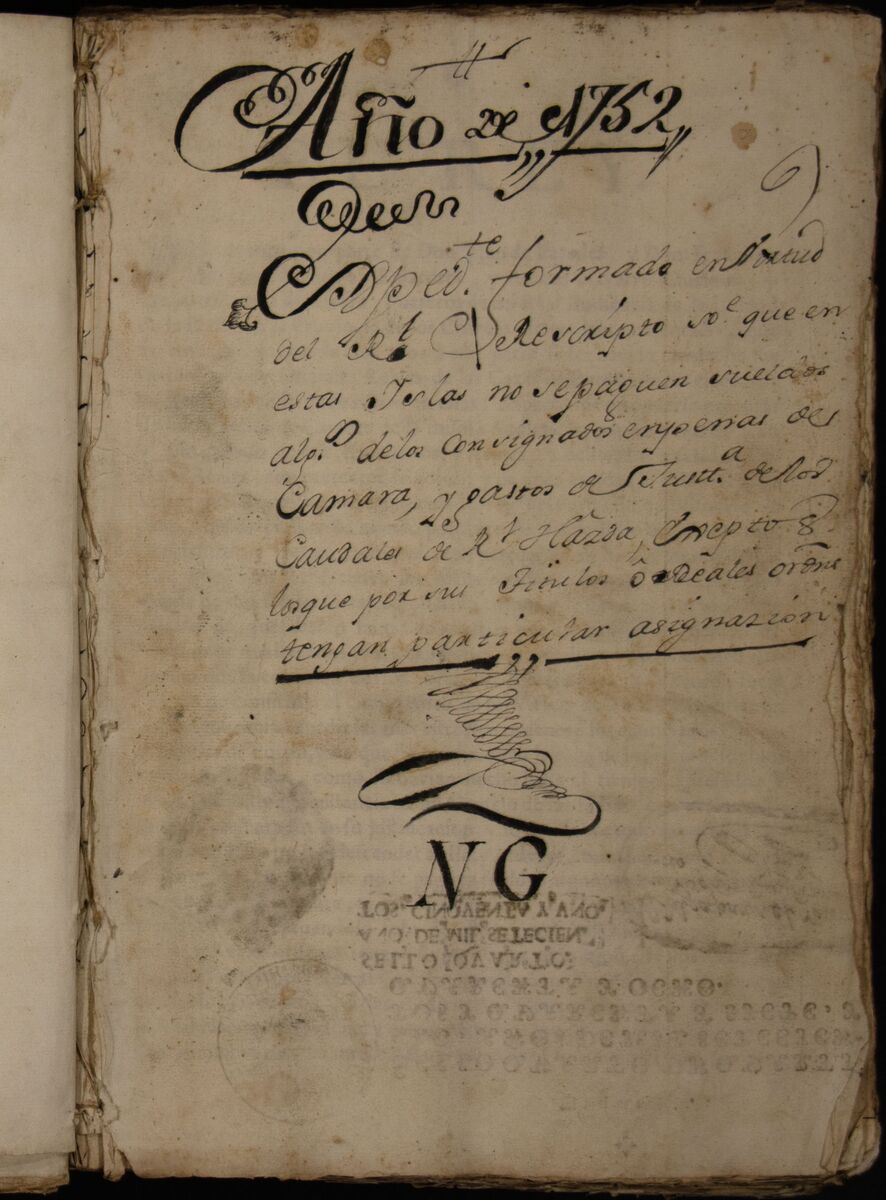 Año de 1752
Expedte. formado en Virtud
del Rl. Rescripto soe. que en
estas Islas no se paguen sueldos
a los de los Consignados en penas de
Camara, y gastos de Justta. de los
Caudales de Rl. Hazda, Excepto
los que por sus Titulos ô Reales ordns
tengan particular asignazion
NG
SELLO QVARTO,
AÑO DE MIL SETECIEN,
TOS, CINQVENTA Y VNO,